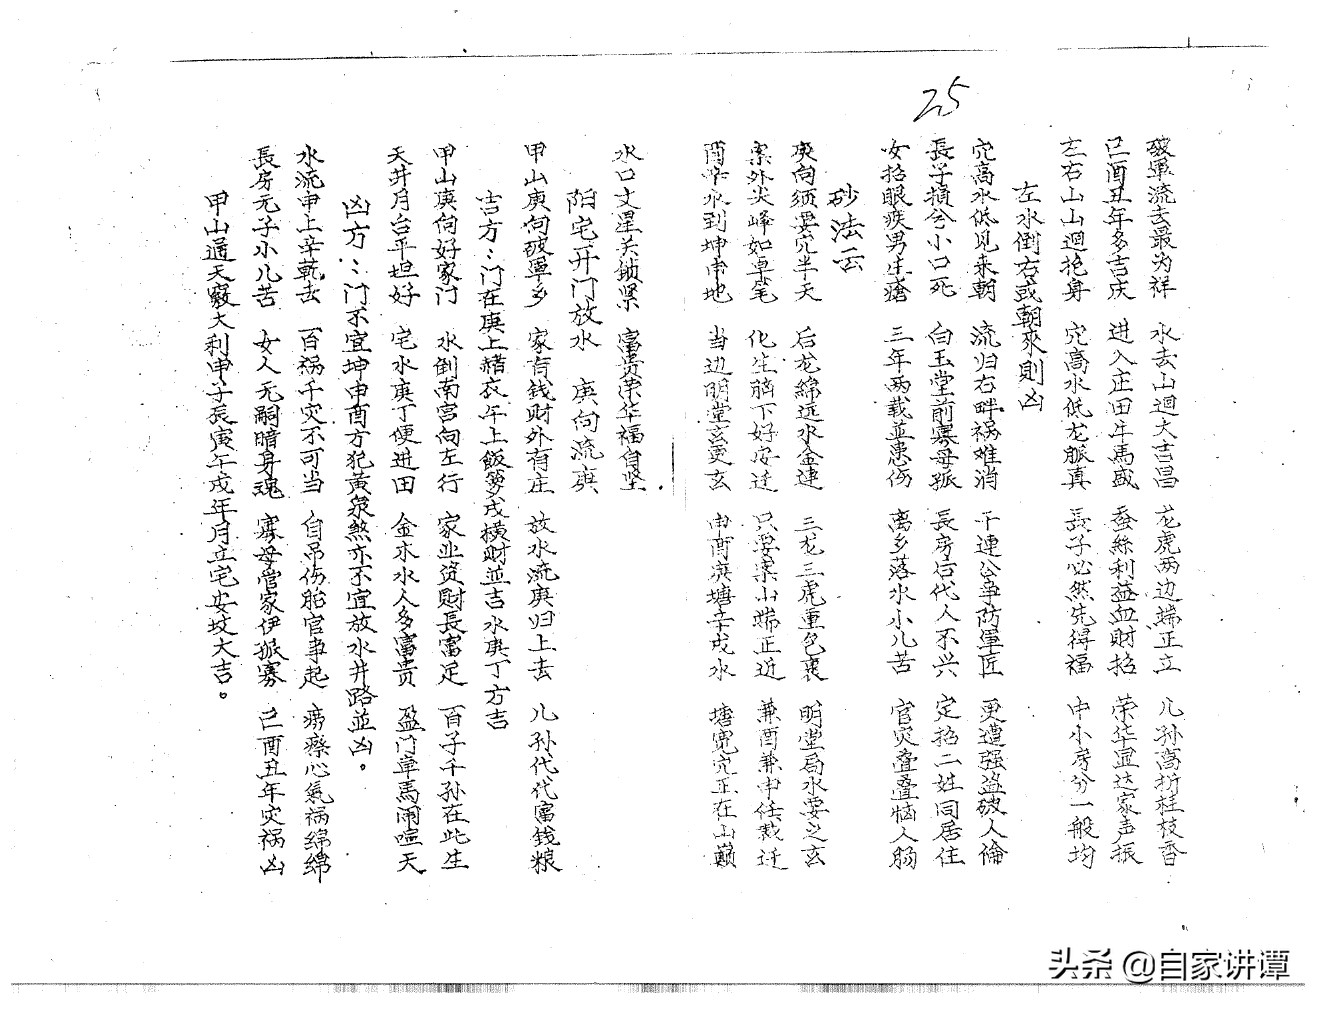 25
破軍流去最为祥 水去山迴大吉昌 龙虎两边端正立 儿孙高折桂枝香
己酉丑年多吉庆 进入庄田牛馬盛 蚕絲利益血財招 荣华显达家声振
左右山山迴抱身 穴高水低龙脈真 長子必然先得福 中小房分一般均
左水倒右或朝來則凶
穴高水低见来朝 流归右畔祸难消 干連公争防軍匠 更遭强盗破人倫
長子損兮小口死 白玉堂前寡母孤 長房后代人不兴 定招二姓同居住
女招眼疾男生瘡 三年两载並患伤 离乡落水小儿苦 官灾叠叠恼人肠
砂法云
庚向须要穴半天 后龙綿远水金連 三龙三虎重包裹 明堂局水要之玄
案外尖峰如卓笔 化生脑下好安迁 只要案山端正近 兼酉兼申任裁迁
酉辛水到坤申地 当边明堂玄更玄 申酉庚塘辛戌水 塘宽穴正在山巅
水口文星关锁紧 富贵荣华福自坚.
阳宅开门放水 庚向流庚
甲山庚向破軍乡 家有钱财外有庄 放水流庚归上去 儿孙代代富钱粮
吉方:门在庚上赭衣午上飯箩戌横财並吉水庚丁方吉
甲山庚向好家门 水倒南宫向左行 家业资財長富足 百子千孙在此生
天井月台平坦好 宅水庚丁便进田 金木水人多富贵 盈门車馬闹喧天
凶方:门不宜坤申酉方犯黄泉煞亦不宜放水井路並凶。
水流申上辛乾去 百祸千灾不可当 自吊伤胎官事起 痨瘵心氣祸绵绵
長房元子小儿苦 女人无嗣暗身魂 寡母管家伊孤寡 己酉丑年灾祸凶
甲山通天竅大利申子辰寅午戌年月立宅安坟大吉。
头条 @自家讲谭